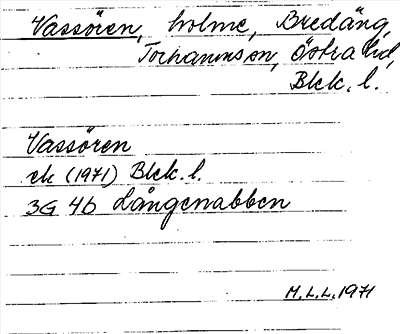 Vassören, holme, Bredäng,
Torhamns sn, Östra hd,
Blek. l.
Vassören
ek (1971) Blek. l.
3G 4b Långenabben
M.L.L. 1971